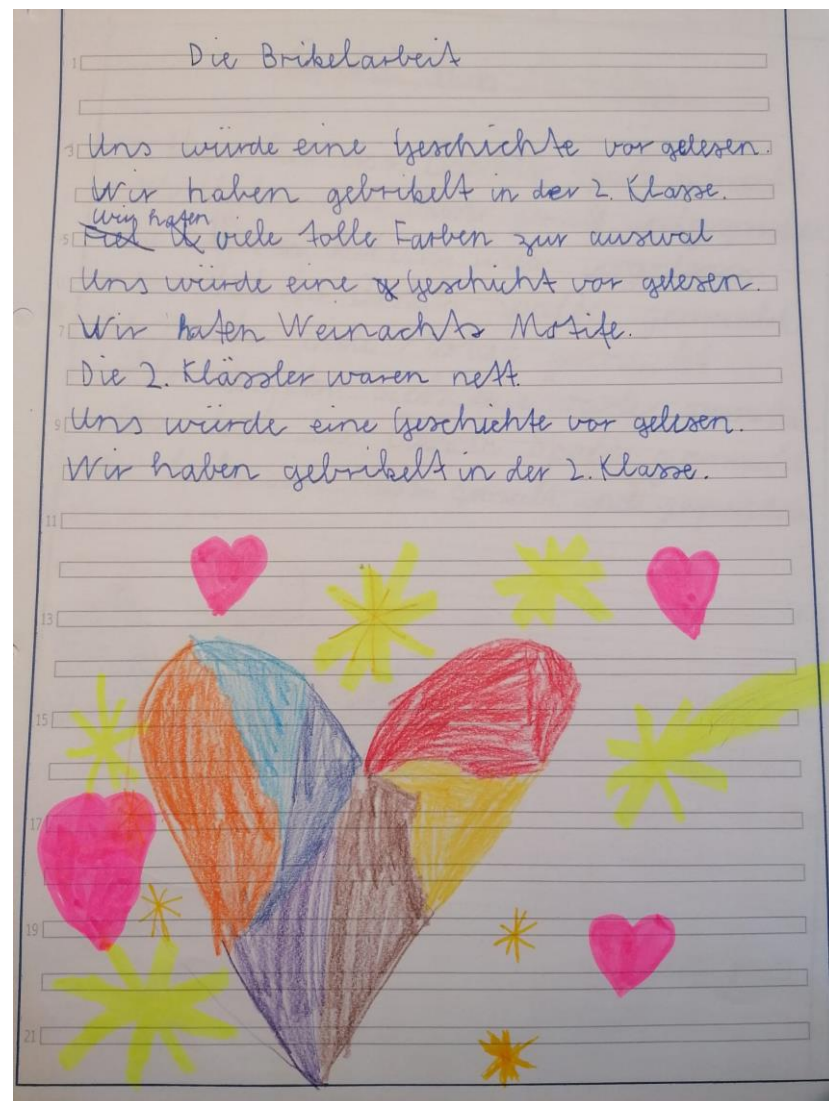 Die Brikelarbeit
Uns würde eine Geschichte vor gelesen.
Wir haben gebrikelt in der 2. Klasse.
Wir haten
viele tolle Farben zur auswal
Uns würde eine Geschicht vor gelesen.
Wir haten Weinachts Motife.
Die 2. Klässler waren nett.
Uns würde eine Geschichte vor gelesen.
Wir haben gebrikelt in der 2. Klasse.
1
3
5
7
9
11
13
15
17
19
21